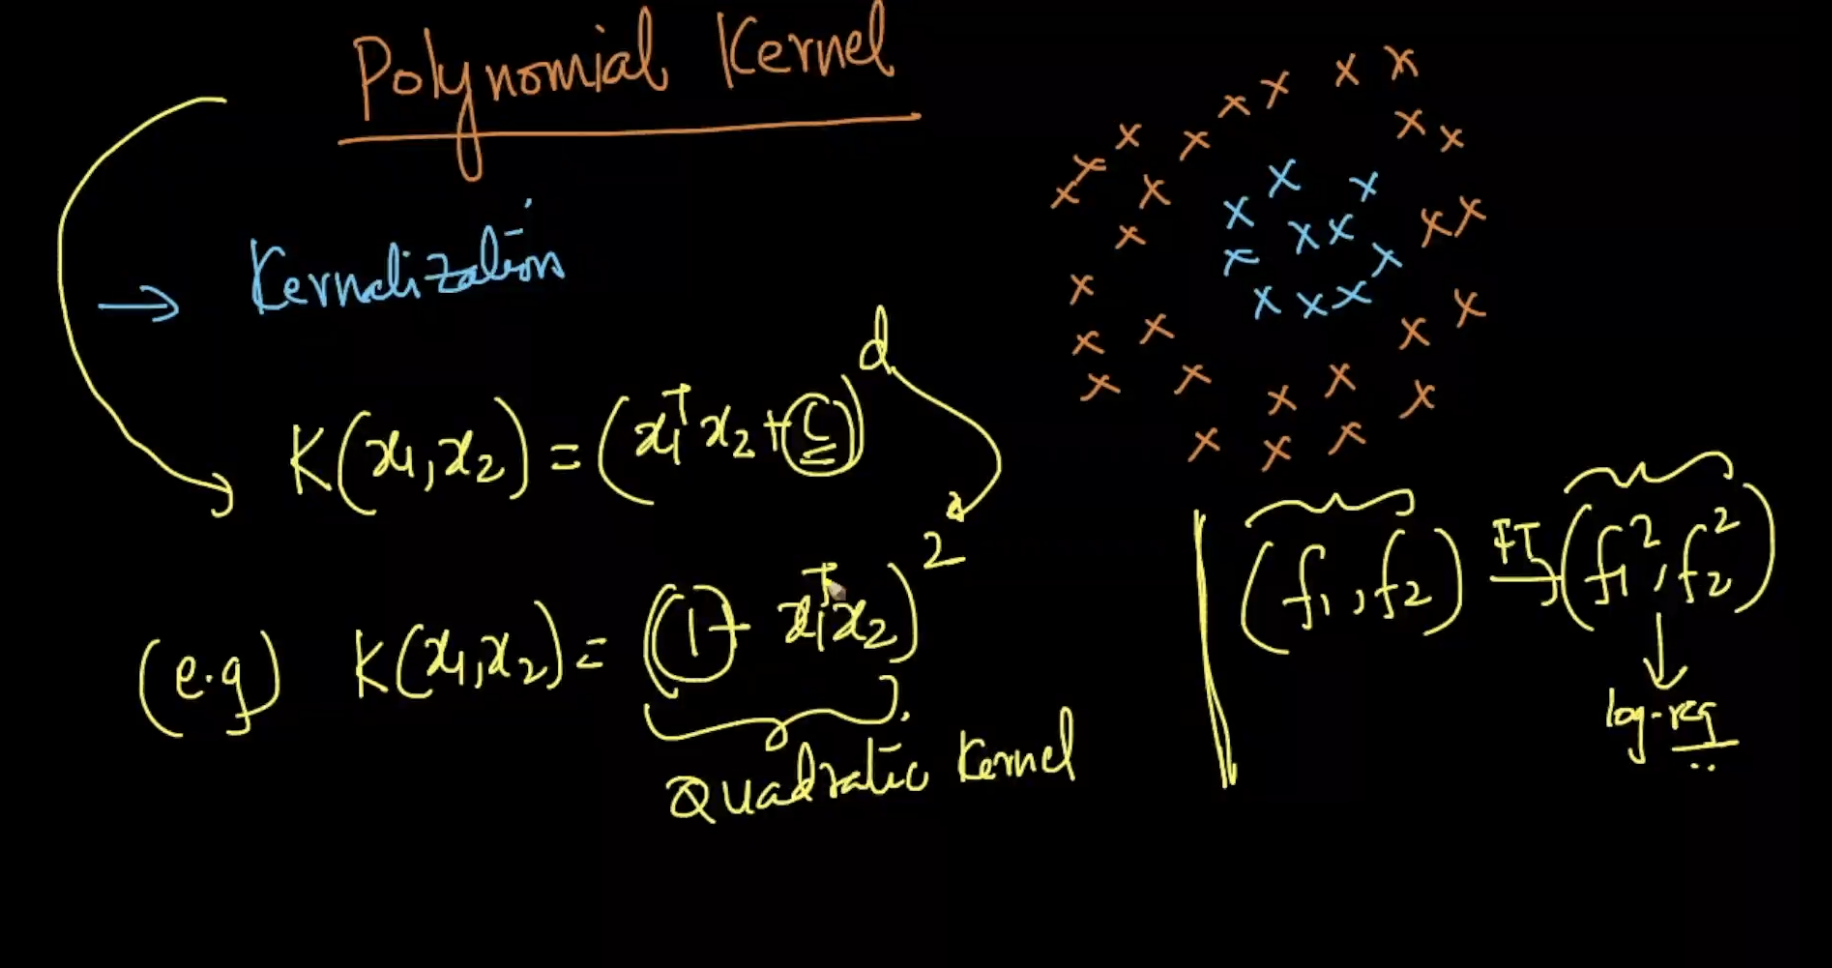 Polynomial Kernel
→ Kernalization
K(x₁,x₂) = (x₁ᵀx₂ + c)ᵈ
(e.g) K(x₁,x₂) = (1 + x₁ᵀx₂)²
Quadratic Kernel
(f₁,f₂) FT→ (f₁²,f₂²)
↓
log-reg